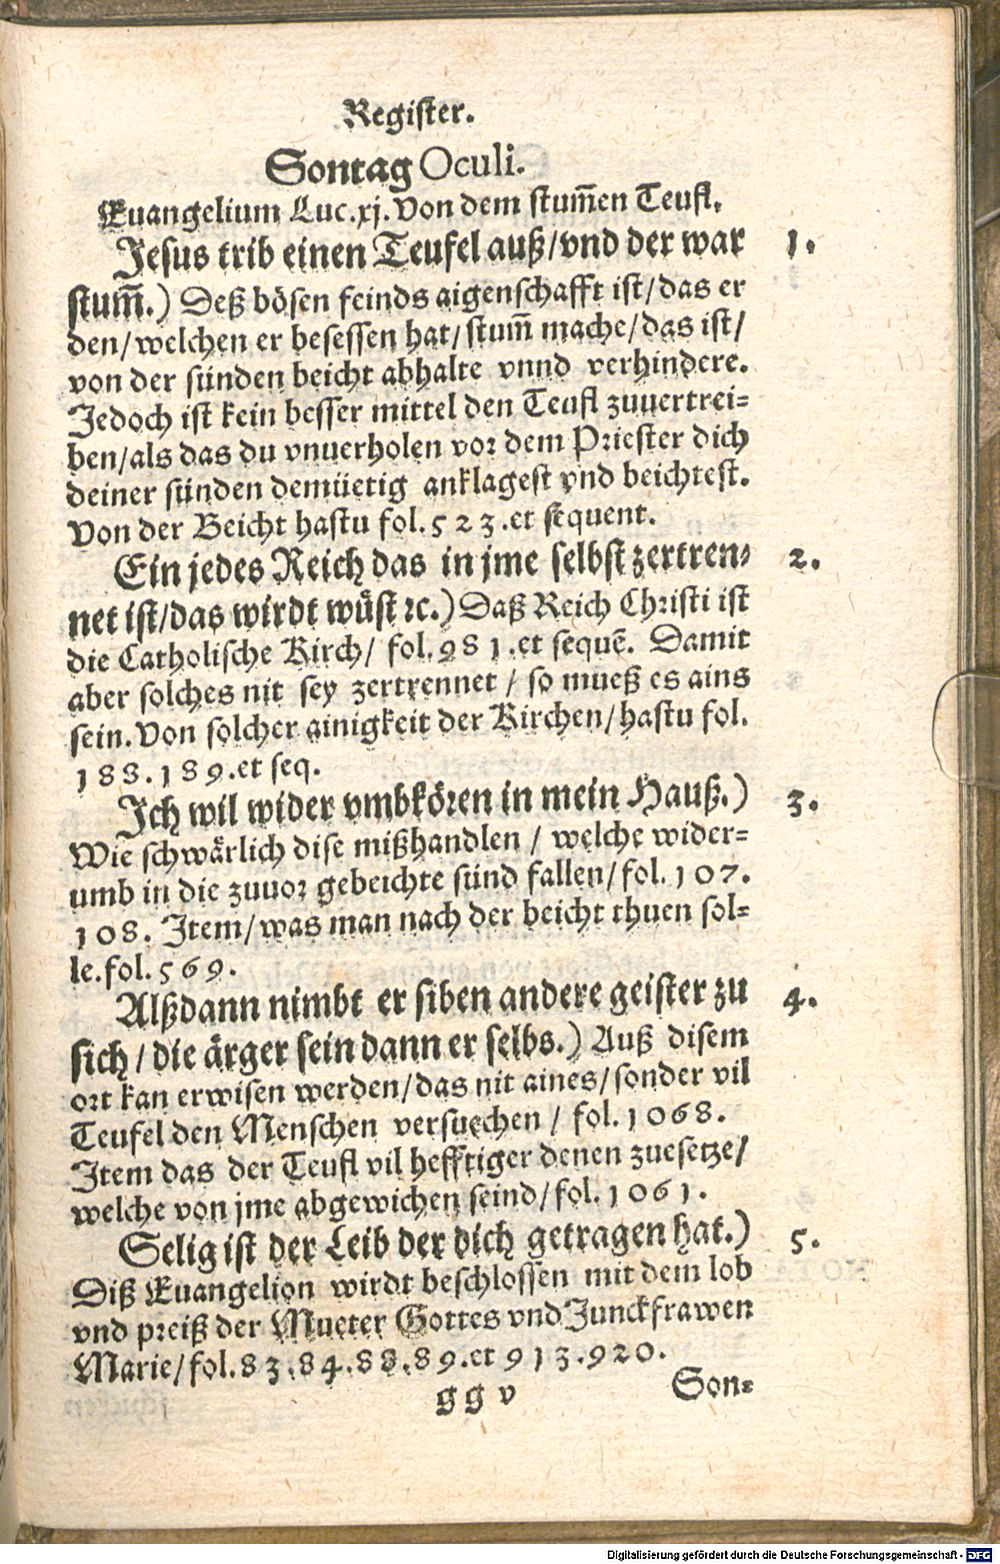 Register.
Sontag Oculi.
Euangelium Luc. xj. Von dem stum̃en Teufl.
Jesus trib einen Teufel auß/vnd der war 1.
stum̃.) Deß bösen feinds aigenschafft ist/das er
den/welchen er besessen hat/stum̃ mache/das ist/
von der sünden beicht abhalte vnnd verhindere.
Jedoch ist kein besser mittel den Teufl zuuertrei=
ben/als das du vnuerholen vor dem Priester dich
deiner sünden demüetig anklagest vnd beichtest.
Von der Beicht hastu fol. 523. et sequent.
Ein jedes Reich das in jme selbst zertren= 2.
net ist/das wirdt wüst ꝛc.) Daß Reich Christi ist
die Catholische Kirch/ fol. 981. et sequẽ. Damit
aber solches nit sey zertrennet / so mueß es ains
sein. Von solcher ainigkeit der Kirchen/hastu fol.
188. 189. et seq.
Ich wil wider vmbkören in mein Hauß.) 3.
Wie schwärlich dise mißhandlen / welche wider=
umb in die zuuor gebeichte sünd fallen/fol. 107.
108. Item/was man nach der beicht thuen sol=
le. fol. 569.
Alßdann nimbt er siben andere geister zu 4.
sich / die ärger sein dann er selbs.) Auß disem
ort kan erwisen werden/das nit aines/sonder vil
Teufel den Menschen versuechen / fol. 1068.
Item das der Teufl vil hefftiger denen zuesetze/
welche von jme abgewichen seind/fol. 1061.
Selig ist der Leib der dich getragen hat.) 5.
Diß Euangelion wirdt beschlossen mit dem lob
vnd preiß der Mueter Gottes vnd Junckfrawen
Marie/fol. 83. 84. 88. 89. et 913. 920.
gg v Son=
Digitalisierung gefördert durch die Deutsche Forschungsgemeinschaft - DFG